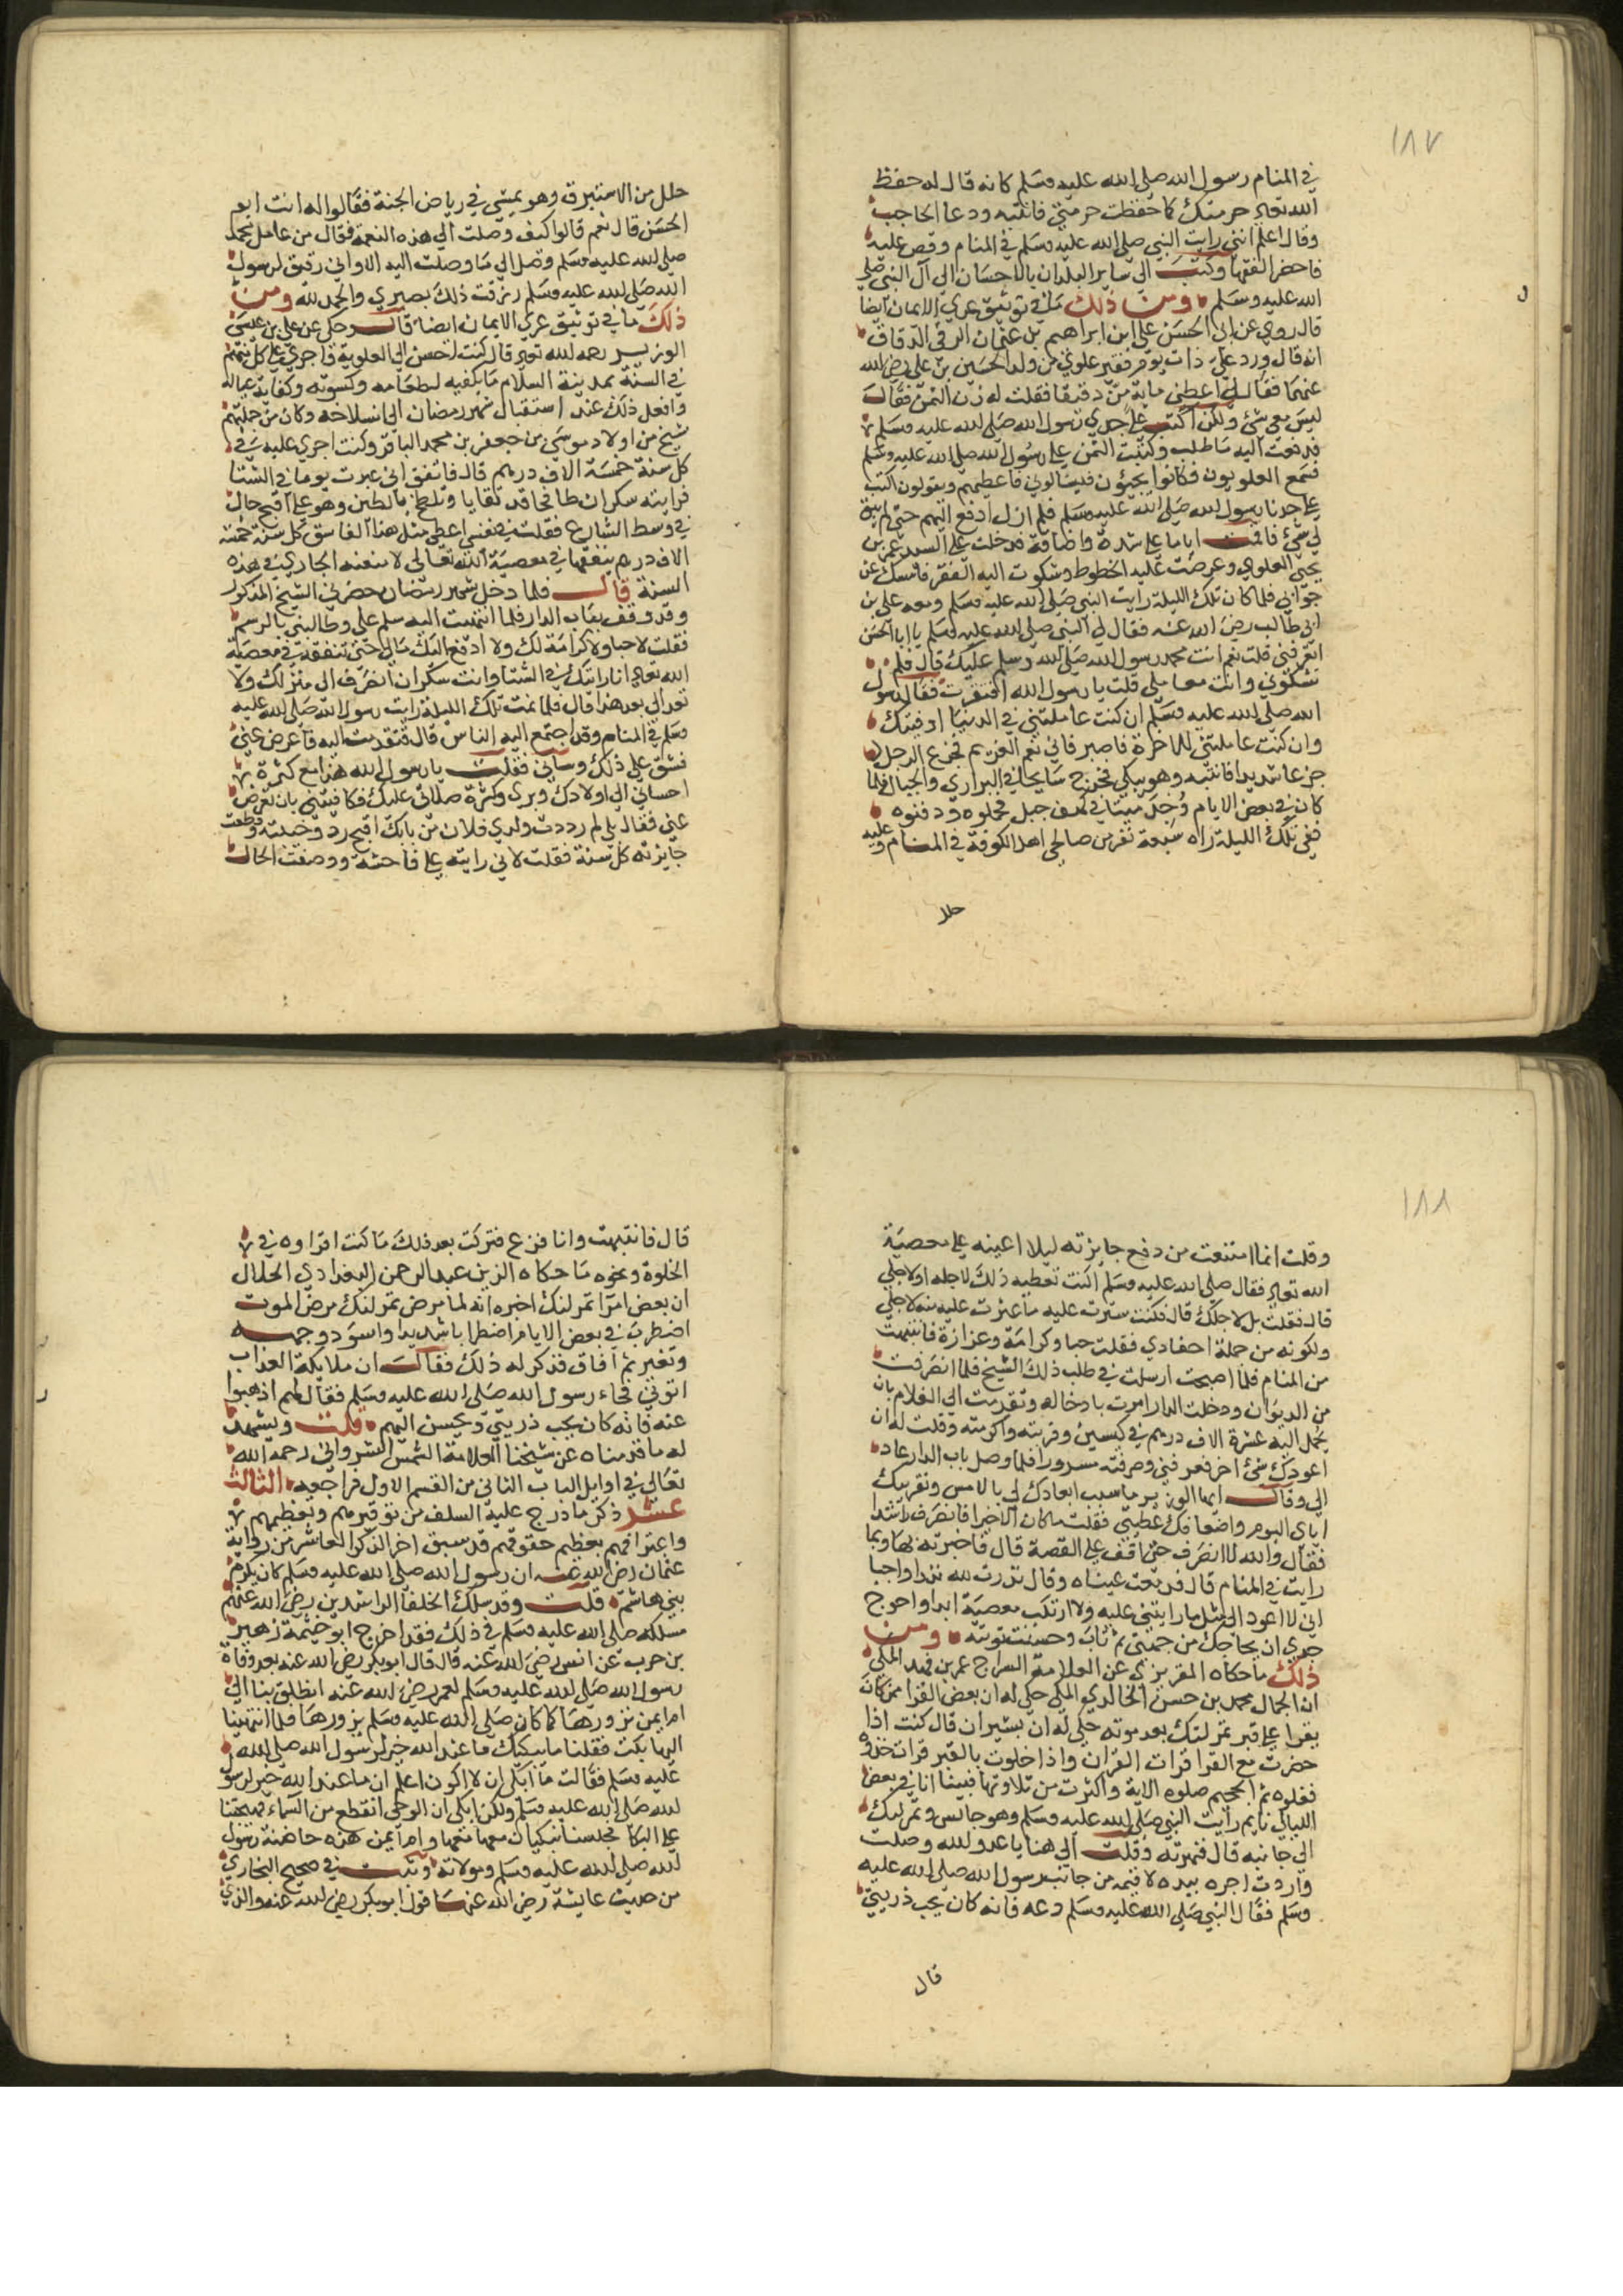 ١٨٧
في المنام رسول الله صلى الله عليه وسلم كانه قال له حفظ
الله تعالى حرمتك كما حفظت حرمتي فانتبه ودعا الحاجب
وقال اعلم انني رايت النبي صلى الله عليه وسلم في المنام وقص عليه
فاحضر الفقها وكتب الى ساير البلدان بالاحسان الى آل النبي صلى
الله عليه وسلم ومن ذلك ما في توثيق عري الايمان ايضا
قال روي عن ابي الحسن علي ابن ابراهيم بن عثمان الرقي الدقاق
انه قال ورد علي ذات يوم فقير علوي من ولد الحسين بن علي رضي الله
عنهما فقال لي اعطني مايه من دقيقا فقلت له زن الثمن فقال
ليس معي شئ ولكن اكتب على جدي رسول الله صلى الله عليه وسلم
فدفعت اليه ما طلب وكتبت الثمن على رسول الله صلى الله عليه وسلم
فسمع العلويون فكانوا يجيؤن فيسالوني فاعطيهم ويقولون اكتب
على جدنا رسول الله صلى الله عليه وسلم فلم ازل ادفع اليهم حتى لم يبق
لي شئ فاقمت اياما على شدة واضاقة فدخلت على السيد عمر بن
يحيى العلوي وعرضت عليه الخطوط وشكوت اليه الفقر فامسك عن
جوابي فلما كان تلك الليلة رايت النبي صلى الله عليه وسلم ومعه علي بن
ابي طالب رضي الله عنه فقال لي النبي صلى الله عليه وسلم يا ابا الحسن
اتعرفني قلت نعم انت محمد رسول الله صلى الله وسلم عليك قال فلم
تشكوني وانت معاملي قلت يا رسول الله افتقرت فقال رسول
الله صلى الله عليه وسلم ان كنت عاملتني في الدنيا اوفيتك
وان كنت عاملتني للاخرة فاصبر فاني نعم الغريم فجزع الرجل
جزعا شديدا فانتبه وهو يبكي فخرج سايحا في البراري والجبال فلما
كان في بعض الايام وجد ميتا في كهف جبل فحملوه ودفنوه
ففي تلك الليلة راه سبعة نفر من صالحي اهل الكوفة في المنام وعليه
حلل
حلل من الاستبرق وهو يمشي في رياض الجنة فقالوا له انت ابو
الحسن قال نعم قالوا كيف وصلت الى هذه النعمة فقال من عامل محمد
صلى الله عليه وسلم وصل الى ما وصلت اليه الا واني رفيق لرسول
الله صلى الله عليه وسلم رزقت ذلك بصبري والحمد لله ومن
ذلك ما في توثيق عري الايمان ايضا قال وحكى عن علي بن عيسى
الوزير رحمه الله تعالى قال كنت احسن الى العلوية فاجري على كل منهم
في السنة بمدينة السلام ما يكفيه لطعامه وكسوته وكفاية عياله
وافعل ذلك عند استقبال شهر رمضان الى انسلاخه وكان من جملتهم
شيخ من اولاد موسى بن جعفر بن محمد الباقر وكنت اجري عليه في
كل سنة خمسة الاف درهم قال فاتفق اني عبرت يوما في الشتا
فرايته سكران طافحا قد تقايا وتلطخ بالطين وهو على اقبح حال
في وسط الشارع فقلت في نفسي اعطي مثل هذا الفاسق كل سنة خمسة
الاف درهم ينفقها في معصية الله تعالى لامنعنه الجاري في هذه
السنة قال فلما دخل شهر رمضان حضرني الشيخ المذكور
وقد وقف بباب الدار فلما انتهيت اليه سلم علي وطالبني بالرسم
فقلت لا حبا ولا كرامة لك ولا ادفع اليك مالي حتى تنفقه في معصية
الله تعالى انا رايتك في الشتا وانت سكران انصرف الى منزلك ولا
تعد الي بعد هذا قال فلما نمت تلك الليلة رايت رسول الله صلى الله عليه
وسلم في المنام وقد اجتمع اليه الناس قال فتقدمت اليه فاعرض عني
فشق علي ذلك وساني فقلت يا رسول الله هذا مع كثرة
احساني الى اولادك وبري وكثرة صلاتي عليك فكافيتني بان تعرض
عني فقال بلى لم رددت ولدي فلان من بابك اقبح رد وخيبته وقطعت
جايزته كل سنة فقلت لاني رايته على فاحشة ووصفت الحال
١٨٨
وقلت انما امتنعت من دفع جايزته ليلا اعينه على معصية
الله تعالى فقال صلى الله عليه وسلم اكنت تعطيه ذلك لاجله او لاجلي
قال فقلت بل لاجلك قال فكنت سترت عليه ما عثرت عليه منه لاجلي
ولكونه من جملة احفادي فقلت حبا وكرامة وعزازة فانتبهت
من المنام فلما اصبحت ارسلت في طلب ذلك الشيخ فلما انصرفت
من الديوان ودخلت الدار امرت بادخاله وتقدمت الى الغلام بان
يحمل اليه عشرة الاف درهم في كيسين وقربته واكرمته وقلت له ان
اعوزك شئ اخر فعرفني وصرفته مسرورا فلما وصل باب الدار عاد
الي وقال ايها الوزير ما سبب ابعادك لي بالامس وتقريبك
اياي اليوم واضعافك عطيتي فقلت ما كان الا خيرا فانصرف راشدا
فقال والله لا انصرف حتى اقف على القصة قال فاخبرته بها وبما
رايت في المنام قال فدمعت عيناه وقال نذرت لله نذرا واجبا
اني لا اعود الى مثل ما رايتني عليه ولا ارتكب معصية ابدا واحوج
جدي ان يحاجك من جهتي ثم تاب وحسنت توبته ومن
ذلك ما حكاه المقريزي عن العلامة السراج عمر بن فهد المكي
ان الجمال محمد بن حسن الخالدي المكي حكى له ان بعض القرا ممن كان
يقرا على قبر تمرلنك بعد موته حكى له ان بشيران قال كنت اذا
حضرت مع القرا قرات القران واذا خلوت بالقبر قرات خذوه
فغلوه ثم الجحيم صلوه الاية واكثرت من تلاوتها فبينا انا في بعض
الليالي نايم رايت النبي صلى الله عليه وسلم وهو جالس وتمرلنك
الى جانبه قال فنهرته وقلت الى هنا يا عدو الله وصلت
واردت اجره بيده لاقيمه من جانب رسول الله صلى الله عليه
وسلم فقال النبي صلى الله عليه وسلم دعه فانه كان يحب ذريتي
قال
قال فانتبهت وانا فزع فتركت بعد ذلك ما كنت اقراوه في
الخلوة ونحوه ما حكاه الزين عبد الرحمن البغدادي الحلال
ان بعض امرا تمرلنك اخبره انه لما مرض تمرلنك مرض الموت
اضطرب في بعض الايام اضطرابا شديدا واسود وجهه
وتغير ثم افاق فذكر له ذلك فقال ان ملايكة العذاب
اتوني فجاء رسول الله صلى الله عليه وسلم فقال لهم اذهبوا
عنه فانه كان يحب ذريتي ويحسن اليهم قلت ويشهد
له ما قدمناه عن شيخنا العلامة الشمس الشرواني رحمه الله
تعالى في اوايل الباب الثاني من القسم الاول فراجعه الثالث
عشر ذكر ما درج عليه السلف من توقيرهم وتعظيمهم
واعترافهم بعظيم حقوقهم قد سبق اخر الذكر العاشر من رواية
عثمان رضي الله عنه ان رسول الله صلى الله عليه وسلم كان يكرم
بني هاشم قلت وقد سلك الخلفا الراشدين رضي الله عنهم
مسلكه صلى الله عليه وسلم في ذلك فقد اخرج ابو خيثمة زهير
بن حرب عن انس رضي الله عنه قال قال ابو بكر رضي الله عنه بعد وفاة
رسول الله صلى الله عليه وسلم لعمر رضي الله عنه انطلق بنا الى
ام ايمن نزورها كما كان صلى الله عليه وسلم يزورها فلما انتهينا
اليها بكت فقلنا ما يبكيك فما عند الله خير لرسول الله صلى الله
عليه وسلم فقالت ما ابكي ان لا اكون اعلم ان ما عند الله خير لرسول
الله صلى الله عليه وسلم ولكن ابكي ان الوحي انقطع من السماء فهيجتنا
على البكا فجلسنا نبكيان معها وام ايمن هذه حاضنة رسول
الله صلى الله عليه وسلم ومولاته وثبت في صحيح البخاري
من حديث عايشة رضي الله عنها قول ابو بكر رضي الله عنه والذي